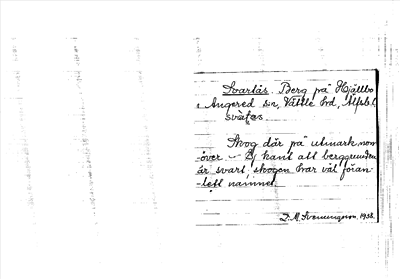 Svartås. Berg på Hjällbo
i Angered sn, Vättle hd, Älfsb. l.
svàtas
Skog där på utmark, nom
över. — Ej känt att berggrunden
är svart, skogen har väl föran-
-lett namnet.
D. M. Svenningson. 1938.